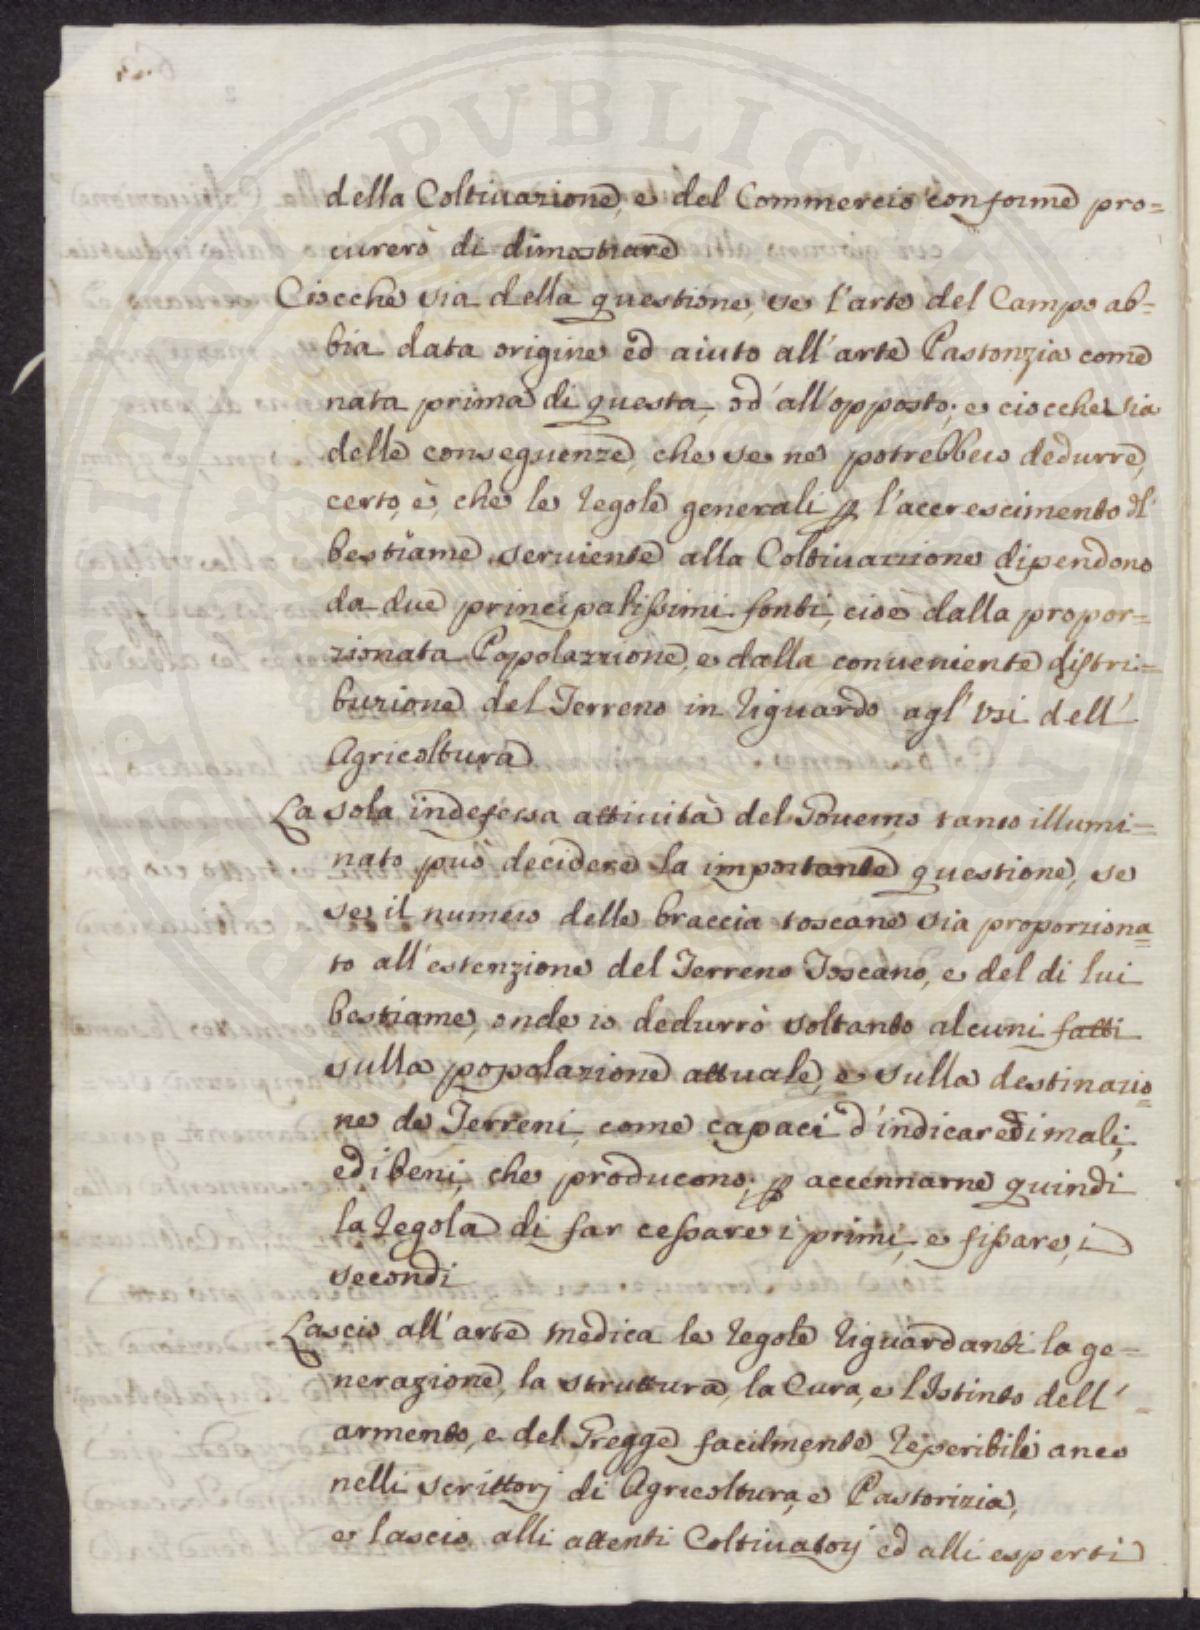 della Coltivazione, e del Commercio conforme pro=
curerò di dimostrare
Ciocche sia della questione, se l'arte del Campo ab=
bia data origine ed aiuto all'arte Pastorizia come
nata prima di questa, od'all'opposto; e ciocche sia
delle conseguenze, che se ne potrebbero dedurre,
certo, è, che le regole generali p l'accrescimento dl'
bestiame serviente alla Coltivazzione dipendono
da due principalissimi fonti, cioè dalla propor=
zionata Popolazzione, e dalla conveniente distri=
buzione del Terreno in riguardo agl'Usi dell'
Agricoltura
La sola indefessa attività del Governo tanto illumi=
nato può decidere la importante questione, se
se il numero delle braccia toscane sia proporziona=
to all'estenzione del Terreno Toscano, e del di lui
bestiame, onde io dedurrò soltanto alcuni fatti
sulla popolazione attuale, e sulla destinazio=
ne de Terreni, come capaci d'indicare i mali,
ed i beni, che producono; p accennarne quindi
la regola di far cessare i primi, e fissare, i
secondi
Lascio all'arte medica le regole riguardanti la ge=
nerazione, la struttura, la Cura, e l'Istinto dell'=
armento, e del Gregge facilmente reperibili anco
nelli scrittorj di Agricoltura, e Pastorizia,
e lascio alli attenti Coltivatorj ed alli esperti